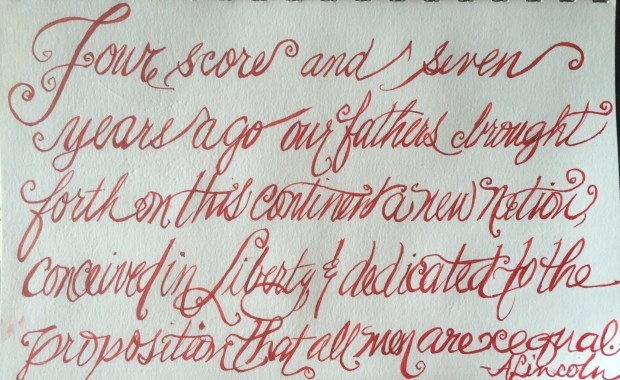 Four score and seven
years ago our fathers brought
forth on this continent a new Nation,
conceived in Liberty, & dedicated to the
proposition that all men are equal.
-A Lincoln